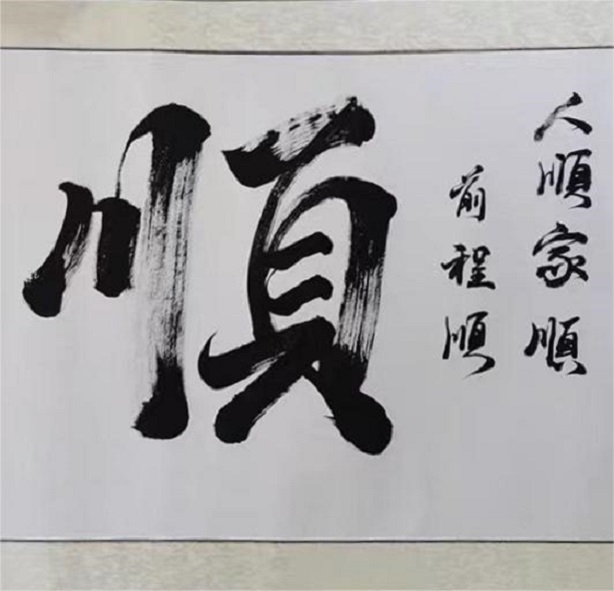 人順家順
前程順
順